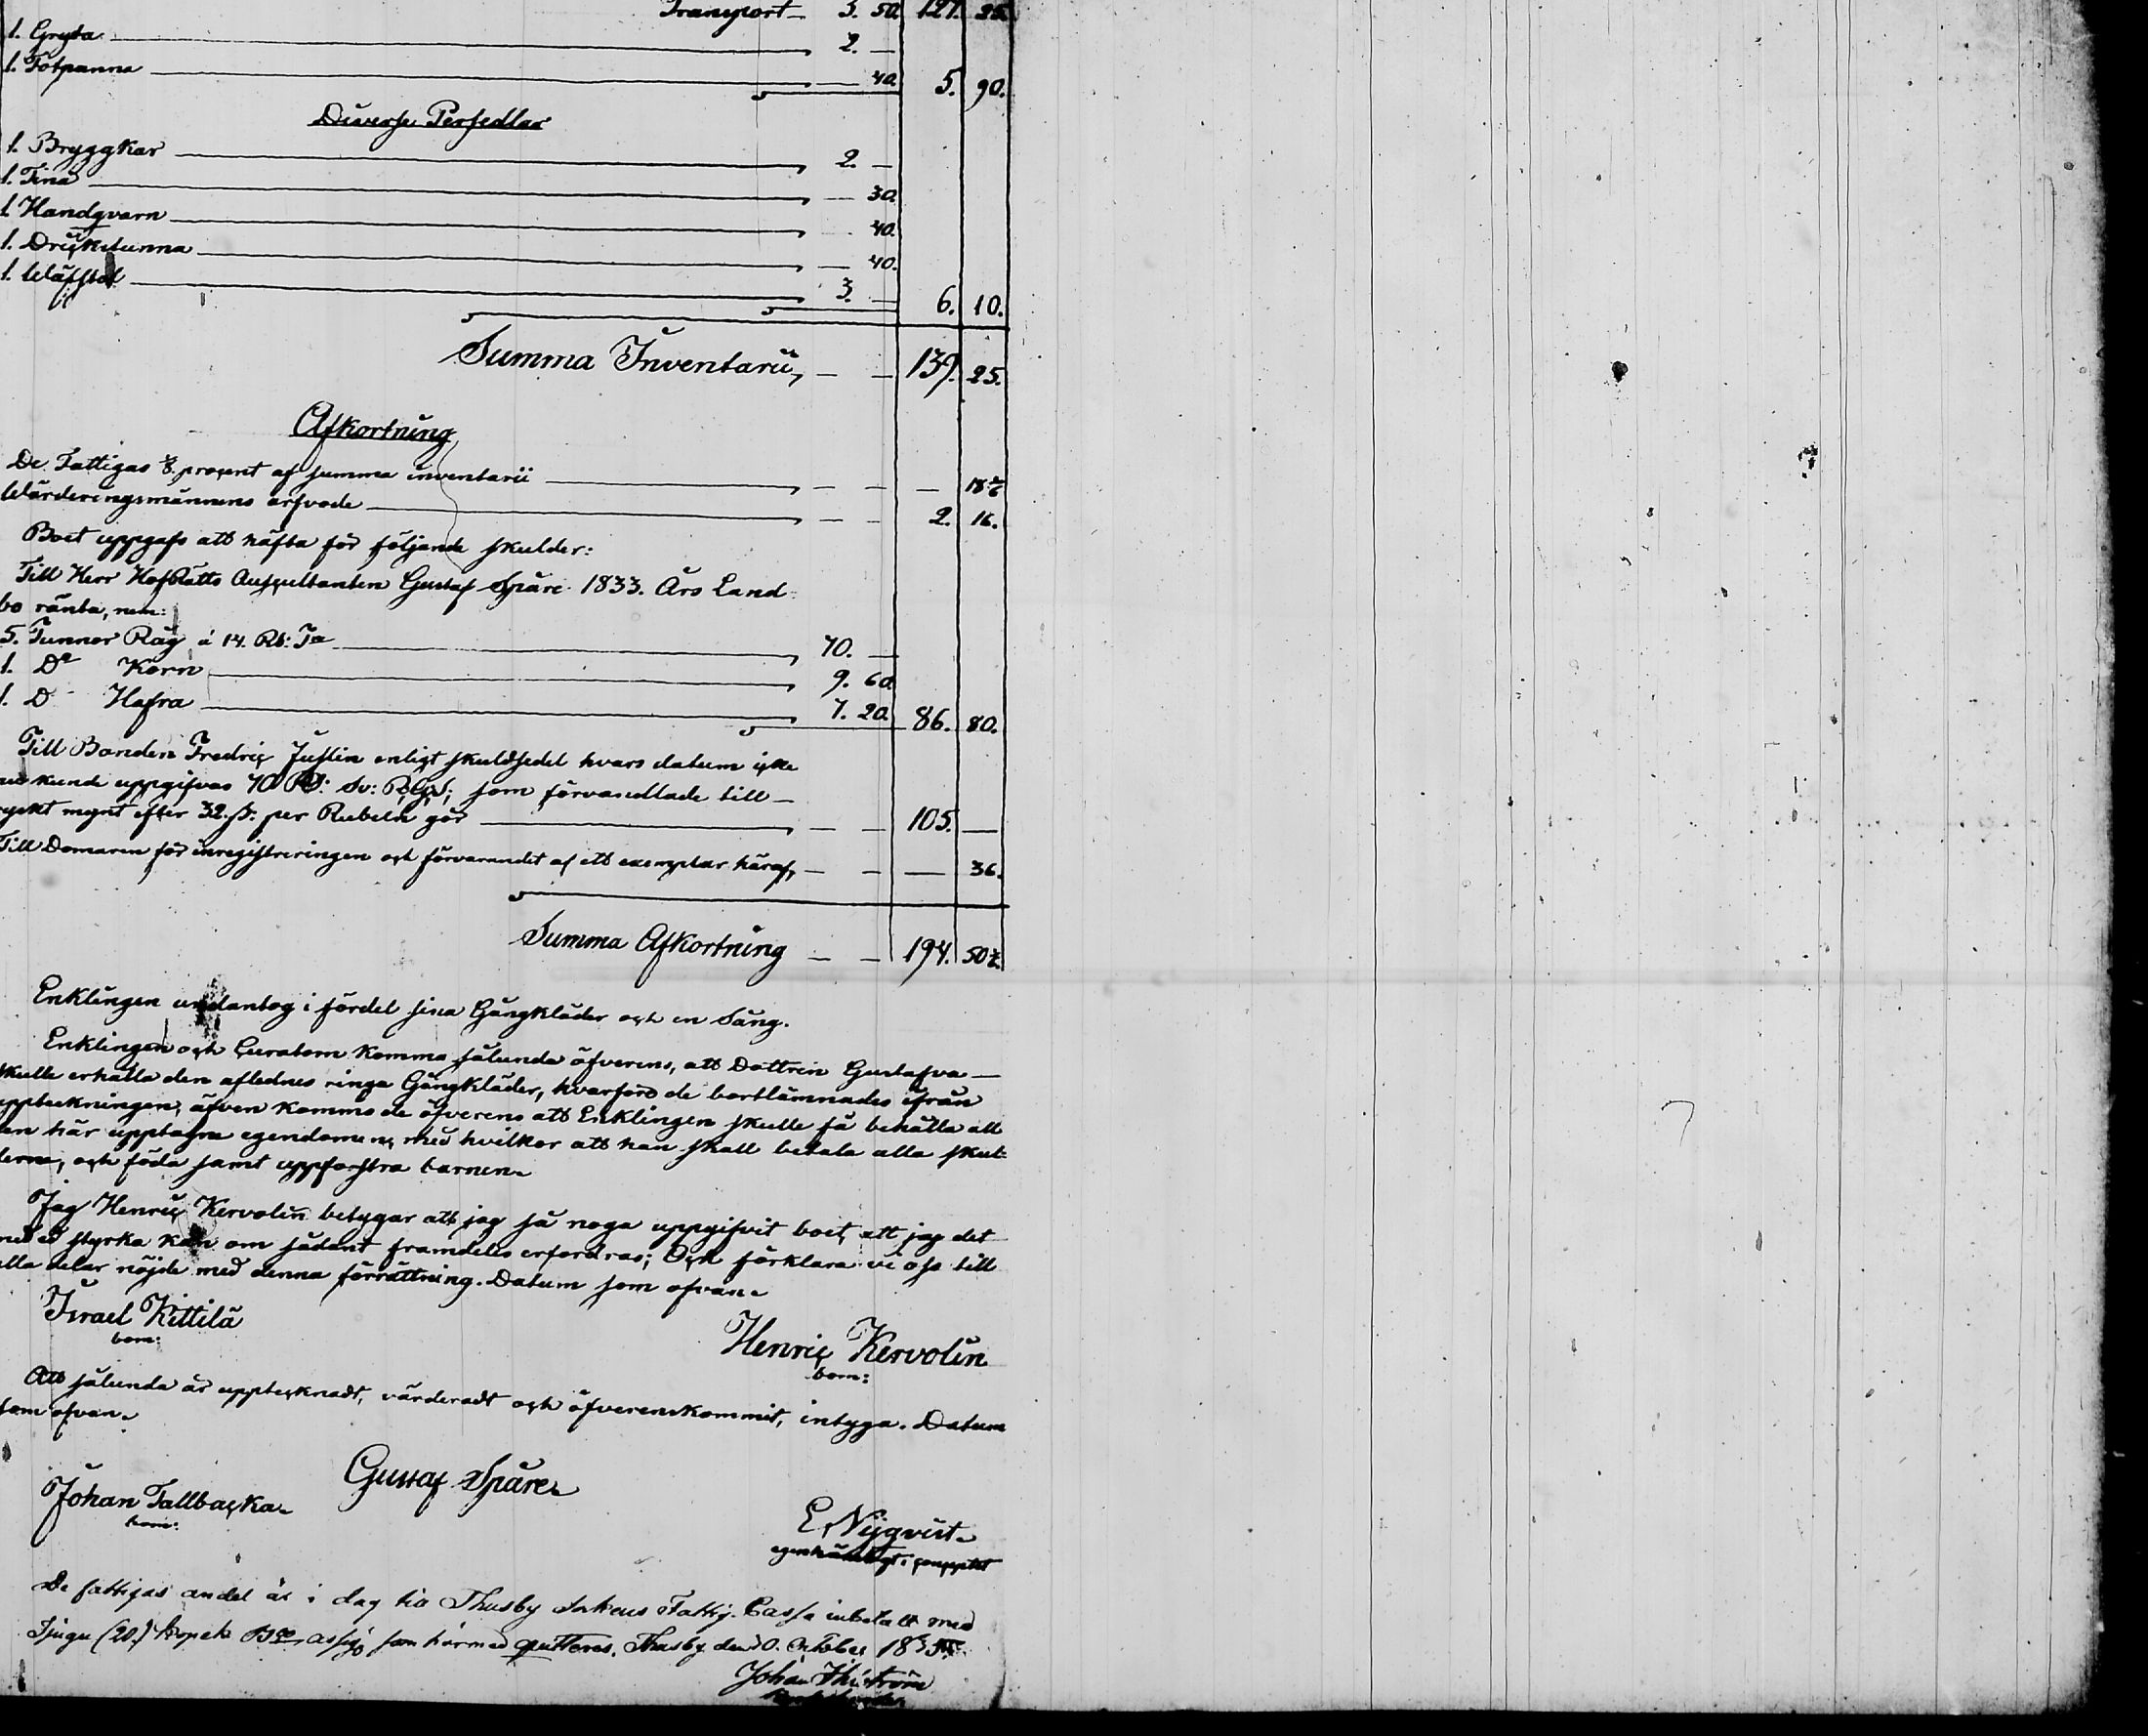 Transport 3. 50 127. 25.
1. Gryta 2. —
1. Fotpanna — 40. 5. 90.
Diverse Persedlar
1. Bryggkar 2. —
1. Tina — 30.
1. Handqvarn — 40.
1. Drickstunna — 40.
1. Wäfstol 3. — 6. 10.
Summa Inventarii, — — 139. 25.
Afkortning
De Fattigas 1/8 procent af summa inventarii — — —
Wärderingsmännens arfvode — — 2. 16.
Boet uppgafs att häfta för följande skulder:
Till Herr HofRätts Auscultanten Gustaf Spåre 1833. Års Land-
bo ränta, nem:
5. Tunnor Råg á 14. Rb: Ta 70. —
1. Do Korn 9. 60
1. D Hafra 7. 20 86. 80.
Till Bonden Fredric Juslin enligt skuldsedel hvars datum icke
nu kunde uppgifvas 70 Rd: Sv: RGS; som förvandlade till
ryskt mynt efter 32. s. per Rubeln gör — — 105. —
Till Domaren för inregistreringen och förvarandet af ett exemplar häraf, — — — 36.
Summa Afkortning — — 194. 50½.
Enklingen undantog i fördel sina Gångkläder och en Säng.
Enklingen och Curatorn komma sålunda öfverens, att Dottren Gustafva
skulle erhålla den aflednes ringa Gångkläder, hvarföre de bortlämnades ifrån
uppteckningen; äfven kommo de öfverens att Enklingen skulle få behålla all
den här upptagna egendomen, med hvilkor att han skall betala alla skul-
derne, och föda samt uppfostra barnen.
Jag Henric Kervolin betygar att jag så noga uppgifvit boet, att jag det
med ed styrka kan om sådant framdeles erfordras; Och förklara vi oss till
alla delar nöjde med denna förrättning. Datum som ofvan.
Israel Kittilä
bom:
Henric Kervolin
bom:
Att sålunda är upptecknadt, värderadt och öfverenskommit, intyga. Datum
som ofvan.
Gustaf Spåre
Johan Tallbacka
bom:
E. Nyqvist
egenhändigt:
De fattigas andel är i dag til Thusby Sokens Fattig-Cassa inbetalt med
Tjugu (20.) kopek Bco assig, som härmed qvitteras. Thusby den October
Johan